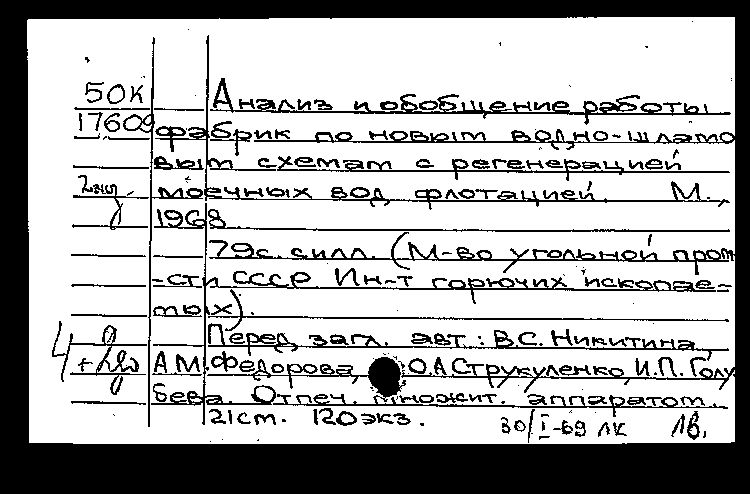 50К Анализ и обобщение работы
17609 фабрик по новым водно-шламо
вым схемам с регенерацией
2экз. моечных вод флотацией. М.,
1968
79с. с илл. (М-во угольной пром
-сти СССР. Ин-т горючих ископае-
мых).
Перед загл. авт.: В.С. Никитина,
А.М. Федорова, О.А Струкуленко, И.П. Голу
бева. Отпеч. множит. аппаратом.
21см. 120экз.
30/I-69 ЛК 1в.